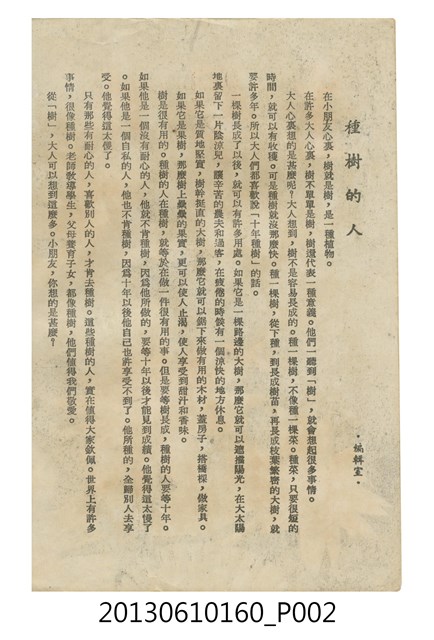 種樹的人
・編輯室・
在小朋友心裏，樹就是樹，是一種植物。
在許多大人心裏，樹不單單是樹，樹還代表一種意義。他們一聽到「樹」，就會想起很多事情。
大人心裏想的是甚麼呢？大人想到，樹不是容易長成的。種一棵樹，不像種一棵菜。種菜，只要很短的
時間，就可以有收穫。可是種樹就沒那麼快。種一棵樹，從下種，到長成樹苗，再長成枝葉繁密的大樹，就
要許多年。所以大人們都喜歡說「十年種樹」的話。
一棵樹長成了以後，就可以有許多用處。如果它是一棵路邊的大樹，那麼它就可以遮擋陽光，在大太陽
地裏留下一片陰涼兒，讓辛苦的農夫和過客，在疲倦的時候有一個涼快的地方休息。
如果它是質地堅實，樹幹挺直的大樹，那麼它就可以鋸下來做有用的木材，蓋房子，搭橋樑，做家具。
如果它是果樹，那麼樹上纍纍的果實，更可以使人止渴，使人享受到甜汁和香味。
樹是很有用的。種樹的人在種樹，就等於在做一件很有用的事。但是要等樹長成，種樹的人要等十年。
如果他是一個沒有耐心的人，他就不肯種樹，因為他所做的，要等十年以後才能見到成績。他覺得這太慢了
。如果他是一個自私的人，他也不肯種樹，因為十年以後他自己也許享受不到了。他所種的，全歸別人去享
受。他覺得這太傻了。
只有那些有耐心的人，喜歡別人的人，才肯去種樹。這些種樹的人，實在值得大家欽佩。世界上有許多
事情，很像種樹。老師教導學生，父母養育子女，都像種樹，他們值得我們敬愛。
從「樹」，大人可以想到這麼多。小朋友，你想的是甚麼？
20130610160_P002